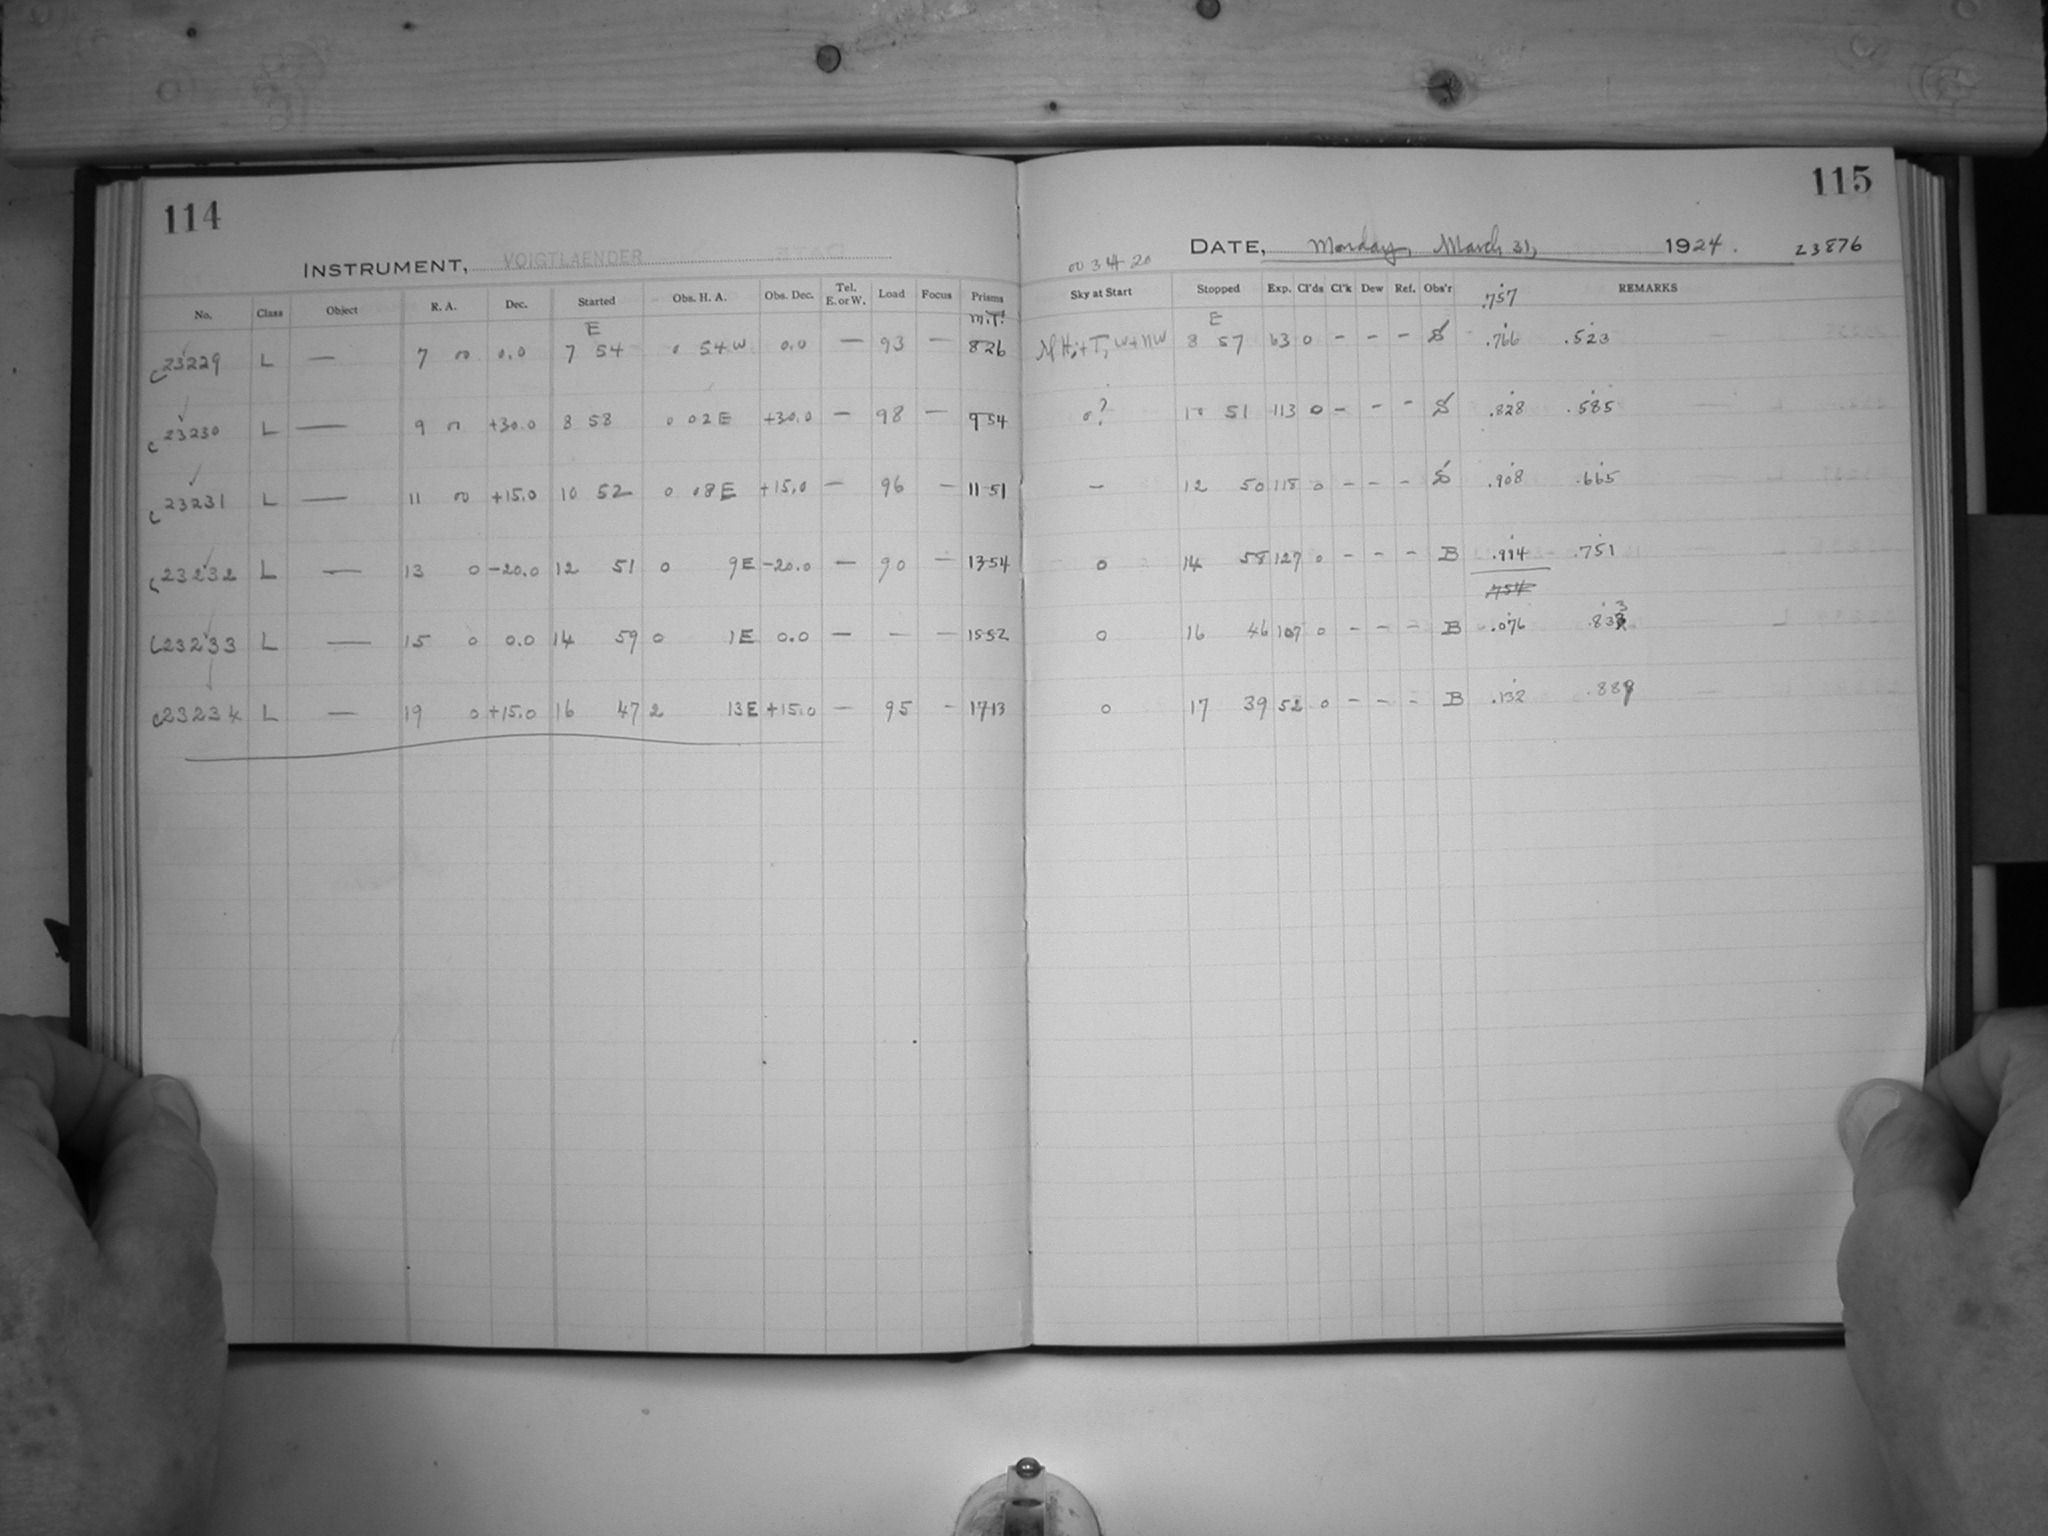 114
INSTRUMENT, VOIGTLAENDER
No. Class Object R. A. Dec. Started Obs. H. A. Obs. Dec. Tel. E. or W. Load Focus Prisms
E M.T.
c23229 L — 7 00 0.0 7 54 0 54 W 0.0 — 93 — 826
c23230 L — 9 00 +30.0 8 58 0 02 E +30.0 — 98 — 954
c23231 L — 11 00 +15.0 10 52 0 08 E +15.0 — 96 — 1151
c23232 L — 13 0 -20.0 12 51 0 9 E -20.0 — 90 — 1354
c23233 L — 15 0 0.0 14 59 0 1 E 0.0 — — — 1552
c23234 L — 19 0 +15.0 16 47 2 13 E +15.0 — 95 — 1713
115
DATE, Monday, March 31, 1924. 23876
00 34 20
Sky at Start Stopped Exp. Cl'ds Cl'k Dew Ref. Obs'r .757 REMARKS
E
W+NW 8 57 63 0 — — — S .766 .523
0? 10 51 113 0 — — — S .828 .585
— 12 50 118 0 — — — S .908 .665
0 14 58 127 0 — — — B .994 .751
0 16 46 107 0 — — — B .076 .833
0 17 39 52 0 — — — B .132 .889